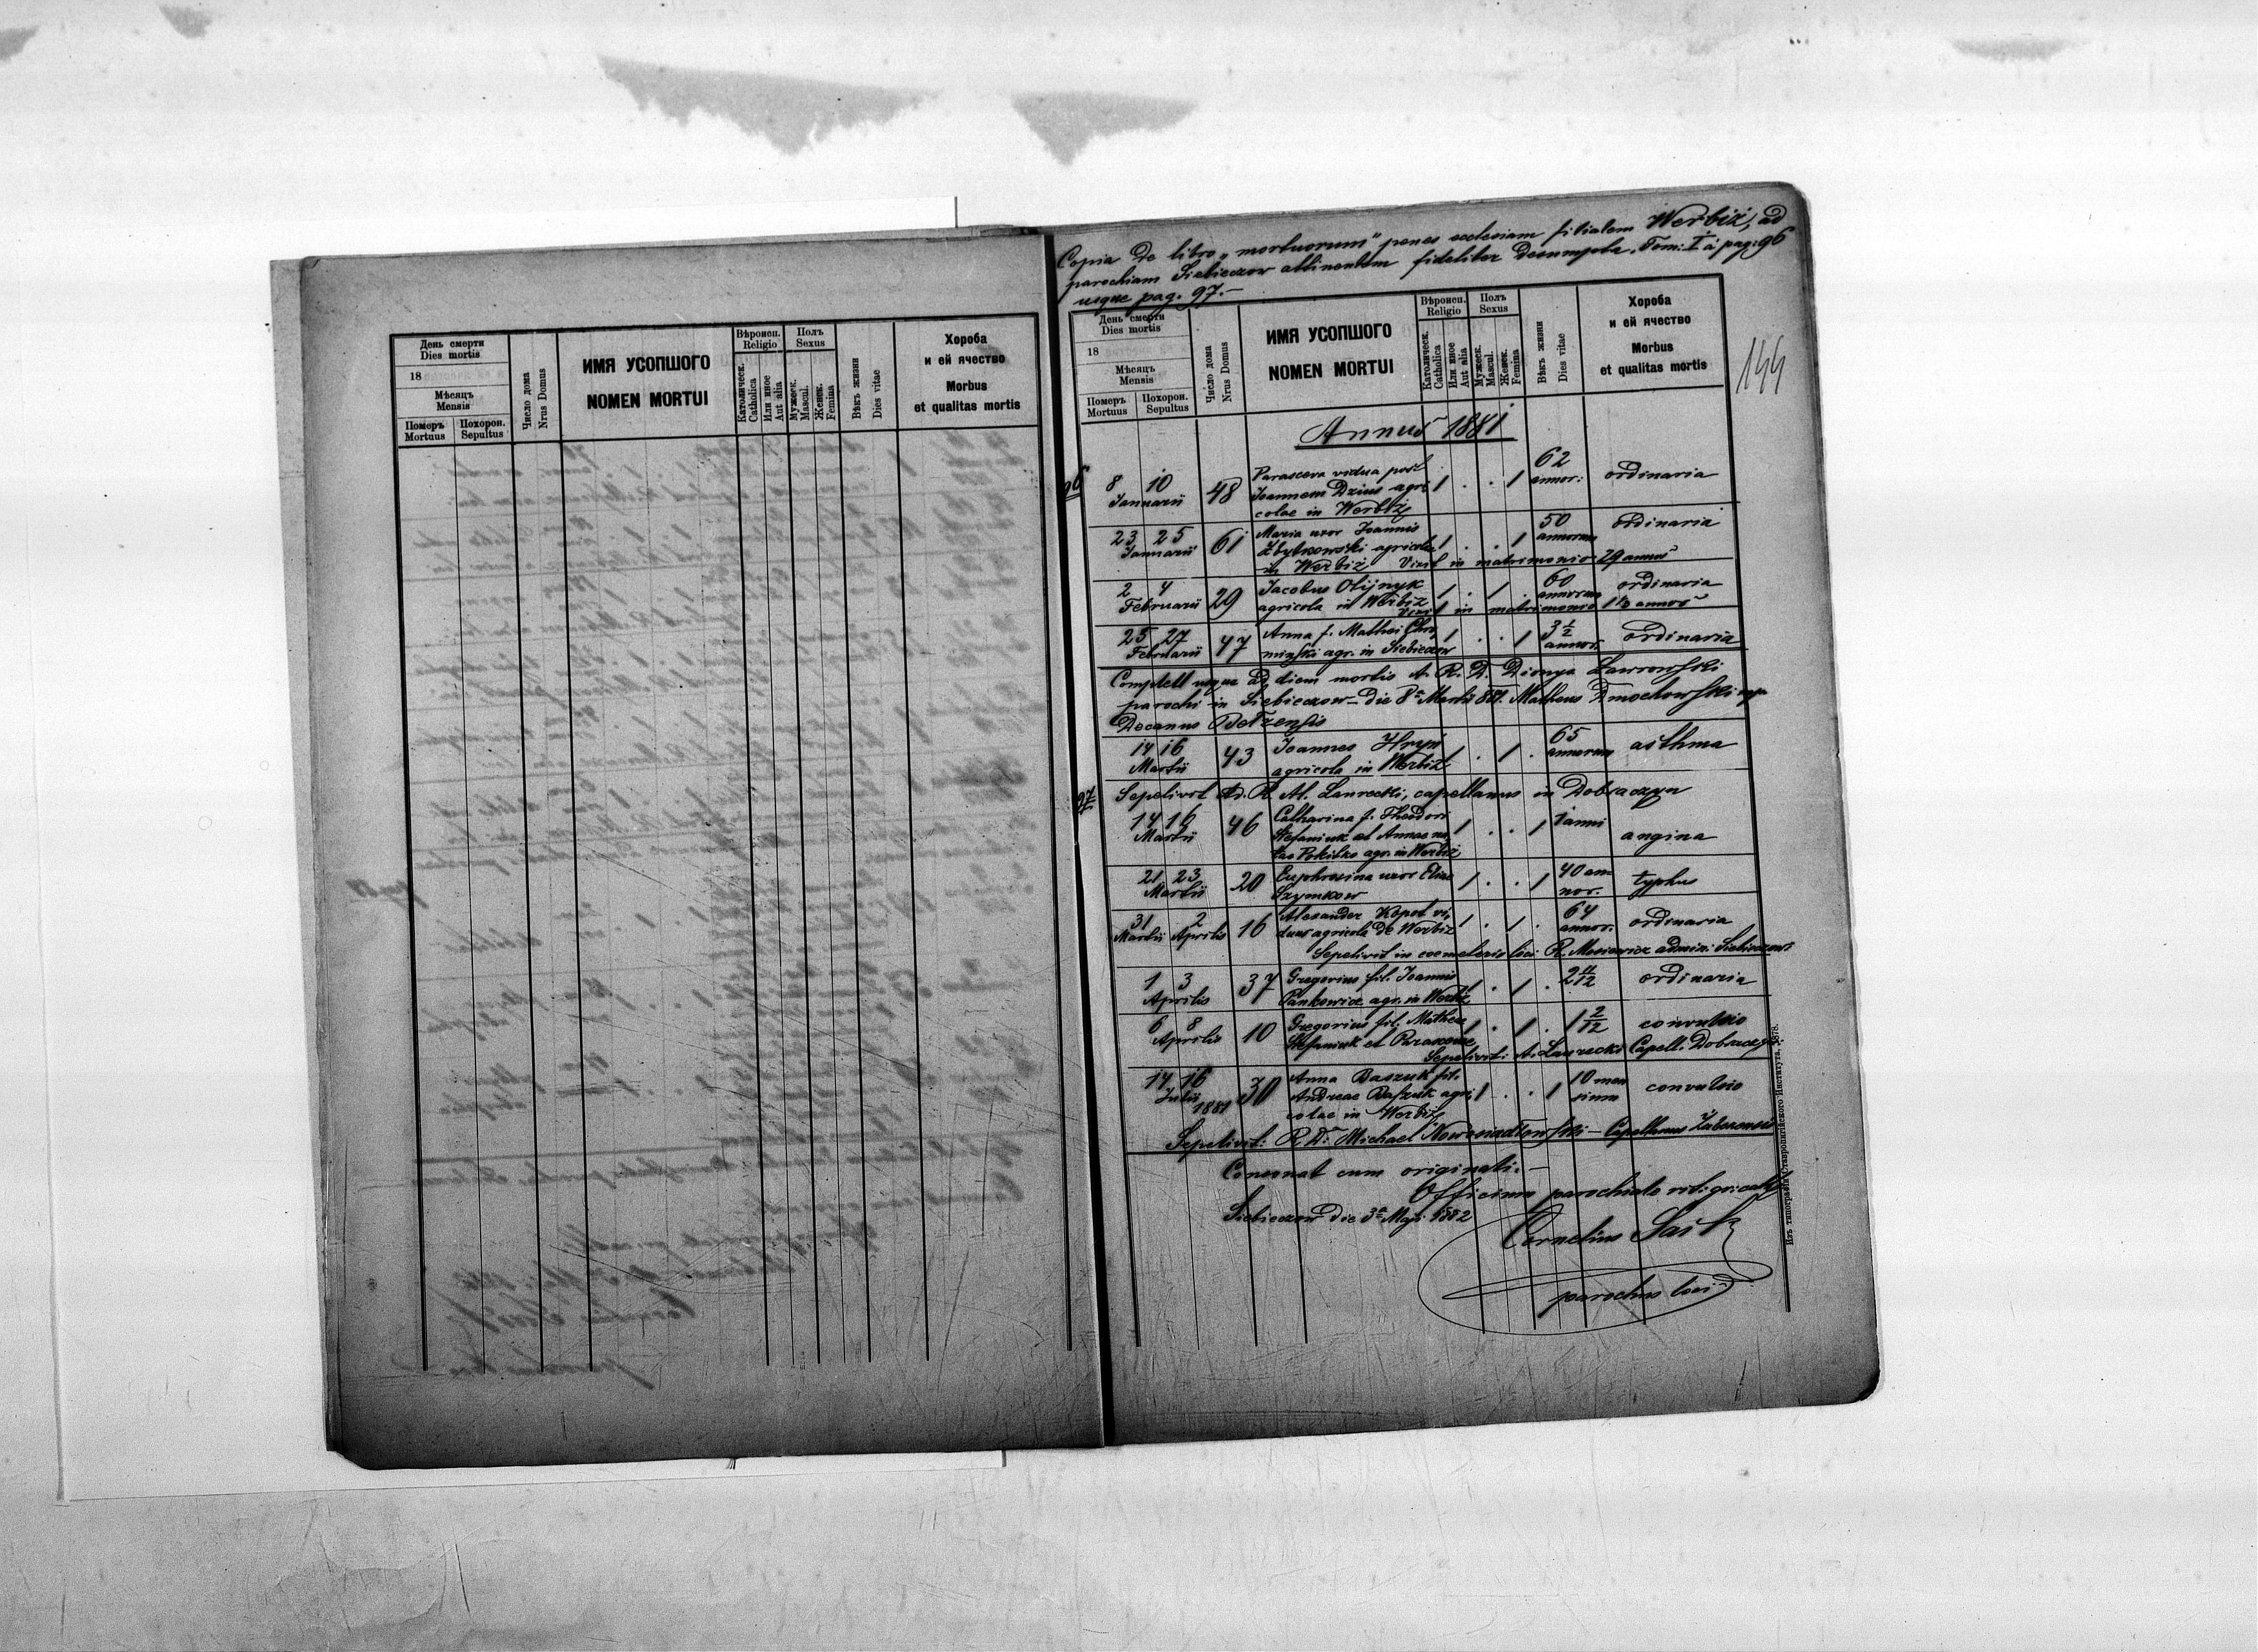 День смерти
Dies mortis
18
Мѣсяць
Mensis
Померъ
Mortuus
Похорон.
Sepultus
Число дома
Nrus Domus
ИМЯ УСОПШОГО
NOMEN MORTUI
Вѣроисп.
Religio
Католическ.
Catholica
Или иное
Aut alia
Полъ
Sexus
Мужеск.
Mascul.
Женск.
Femina
Вѣкъ жизни
Dies vitae
Хороба
и ей ячество
Morbus
et qualitas mortis
Copia de libro "mortuorum" penes ecclesiam filialem Werbiż, ad
parochiam Siebieczow attinentem fideliter desumpta. Tom: I à pag: 96
usque pag. 97.–
144
День смерти
Dies mortis
18
Мѣсяць
Mensis
Померъ
Mortuus
Похорон.
Sepultus
Число дома
Nrus Domus
ИМЯ УСОПШОГО
NOMEN MORTUI
Вѣроисп.
Religio
Католическ.
Catholica
Или иное
Aut alia
Полъ
Sexus
Мужеск.
Mascul.
Женск.
Femina
Вѣкъ жизни
Dies vitae
Хороба
и ей ячество
Morbus
et qualitas mortis
Annus 1881
96
8 10
Januarii
48
Parasceva vidua post
Joannem Dzius agri
colae in Werbiż
1 . . 1
62
annor:
ordinaria
23 25
Januarii
61
Maria uxor Joannis
Zbytkowski agricola
in Werbiż Vixit in matrimonio 29 annos
1 . . 1
50
annorum
ordinaria
2 4
Februarii
29
Jacobus Olijnyk
agricola in Werbiż
Vixit in matrimonio annos
1 . 1 .
60
annorum
ordinaria
25 27
Februarii
47
Anna f. Mathei
agr. in Siebieczow
1 . . 1
3 1/2
annor.
ordinaria
Complett usque ad diem mortis A. R. D. Dionys Lawrowski
parochi in Siebieczow – die 8a Martii 881. Matheus Dmochowski mp
Decanus Bełzensis
14 16
Martii
43
Joannes Hryń
agricola in Werbiż
1 . 1 .
65
annorum
asthma
97
Sepelivit Ad. R. Al. Laurecki, capellanus in Dobraczyn
14 16
Martii
46
Catharina f. Theodori
Stefaniuk et Annae na
tae Pokitko agr. in Werbiż
1 . . 1
1 anni
angina
21 23
Martii
20
Euphrosina uxor Eliae
Szymkow
1 . . 1
40 an
nor.
typhus
31 2
Martii Aprilis
16
Alexander Kopot vi,
duus agricola de Werbiż
1 . 1 .
64
annor.
ordinaria
Sepelivit in coemeterio loci R. admin: Siebieczow
1 3
Aprilis
37
Gregorius fil. Joannis
Pankowicz agr. in Werbiż
1 . 1 .
2 11/12
ordinaria
6 8
Aprilis
10
Gregorius fil. Mathei
Stefaniuk et Parasceve
1 . 1 .
1 2/12
convulsio
Sepelivit: A. Laurecki Capell. Dobraczyn.
14 16
Julii
1881
30
Anna Baszuk fil.
Andreae Baszuk agri
colae in Werbiż
1 . . 1
10 men
sium
convulsio
Sepelivit: R. D. Michael Nowosiadlowski – Capellanus
Consonat cum originali.–
Officium parochiale rit. gr. cath.
Siebieczow die 3a Maji 1882
Cornelius
parochus loci
Изъ типографіи Ставропигійского Института, 1878.